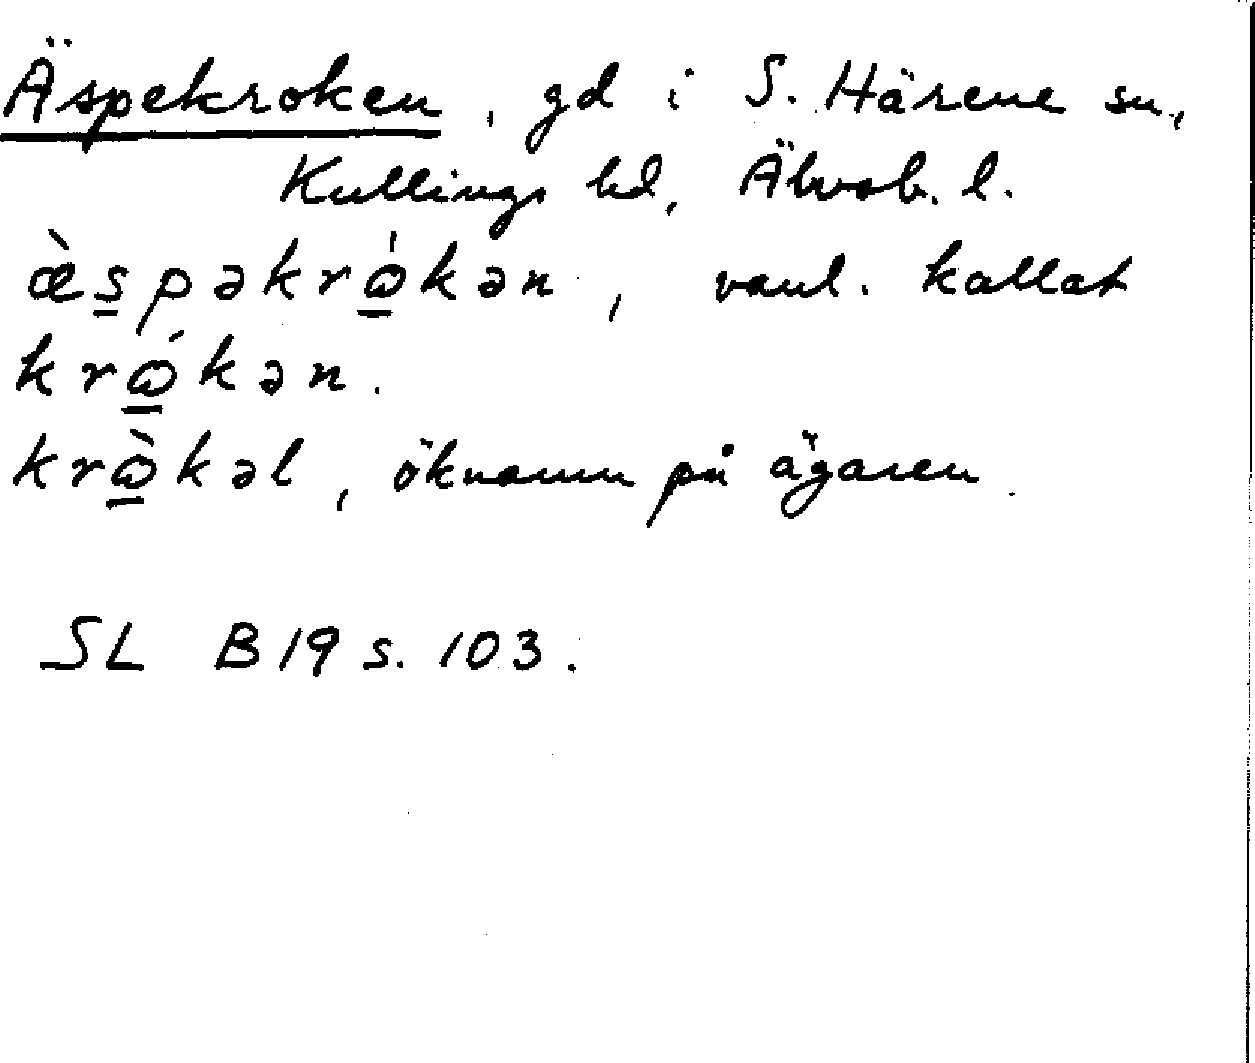 Äspekroken, gd i S. Härene sn,
Kullings hd, Älvsb. l.
æ̀s̲pəkrɷ̲̍kən, vanl. kallat
krɷ̲́kən.
krɷ̲̀kəl, öknamn på ägaren.
SL B19 s. 103.